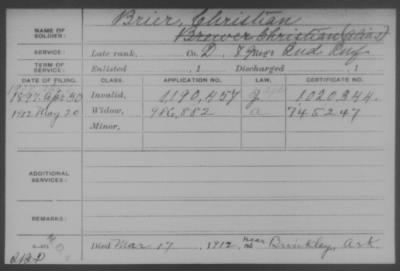 Brier, Christian
NAME OF SOLDIER: Brower Christian (alias)
SERVICE: Late rank, Co. D, 8 Mo. Ind Inf
TERM OF SERVICE: Enlisted , 1 Discharged , 1
DATE OF FILING. CLASS. APPLICATION NO. LAW. CERTIFICATE NO.
1897 Apr 30 Invalid, 1190,457 1020344
1912 May 20 Widow, 986,882 a 745247
Minor,
ADDITIONAL SERVICES:
REMARKS:
Died Mar 17, 1912, near Brinkley, Ark